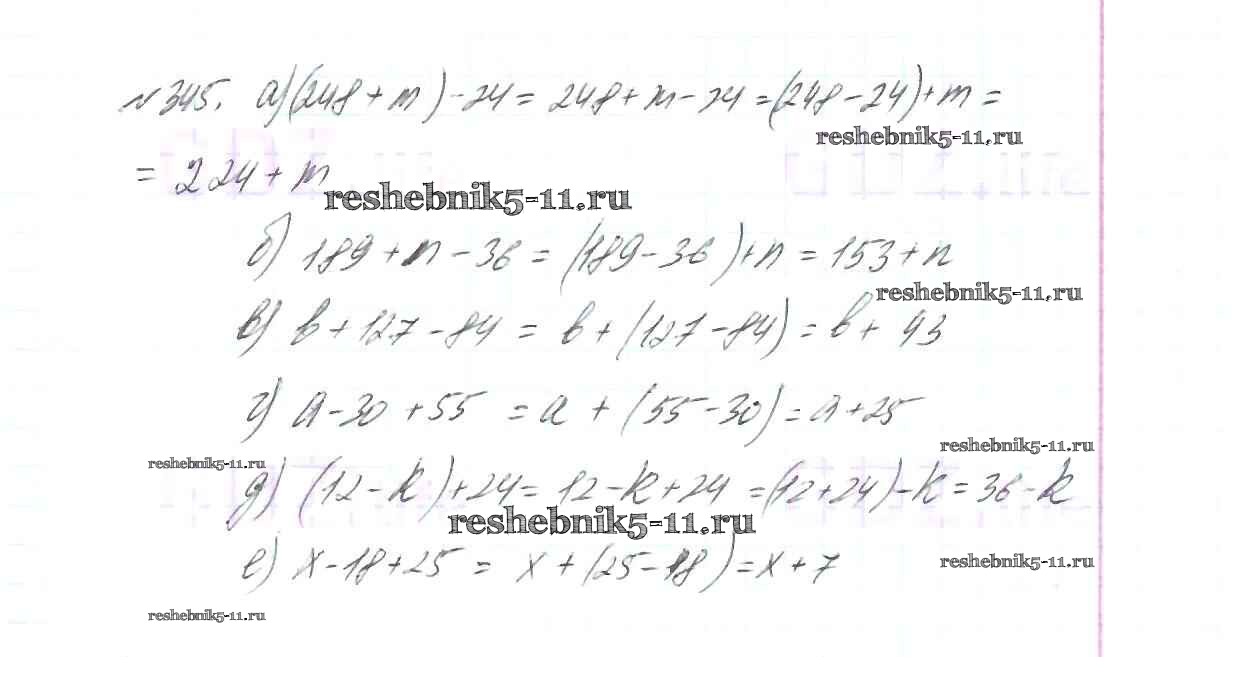 № 345. а) (248 + m) - 24 = 248 + m - 24 = (248 - 24) + m =
reshebnik5-11.ru
= 224 + m
reshebnik5-11.ru
б) 189 + n - 36 = (189 - 36) + n = 153 + n
reshebnik5-11.ru
в) b + 127 - 84 = b + (127 - 84) = b + 43
г) a - 30 + 55 = a + (55 - 30) = a + 25
reshebnik5-11.ru
reshebnik5-11.ru
д) (12 - k) + 24 = 12 - k + 24 = (12 + 24) - k = 36 - k
reshebnik5-11.ru
е) x - 18 + 25 = x + (25 - 18) = x + 7
reshebnik5-11.ru
reshebnik5-11.ru